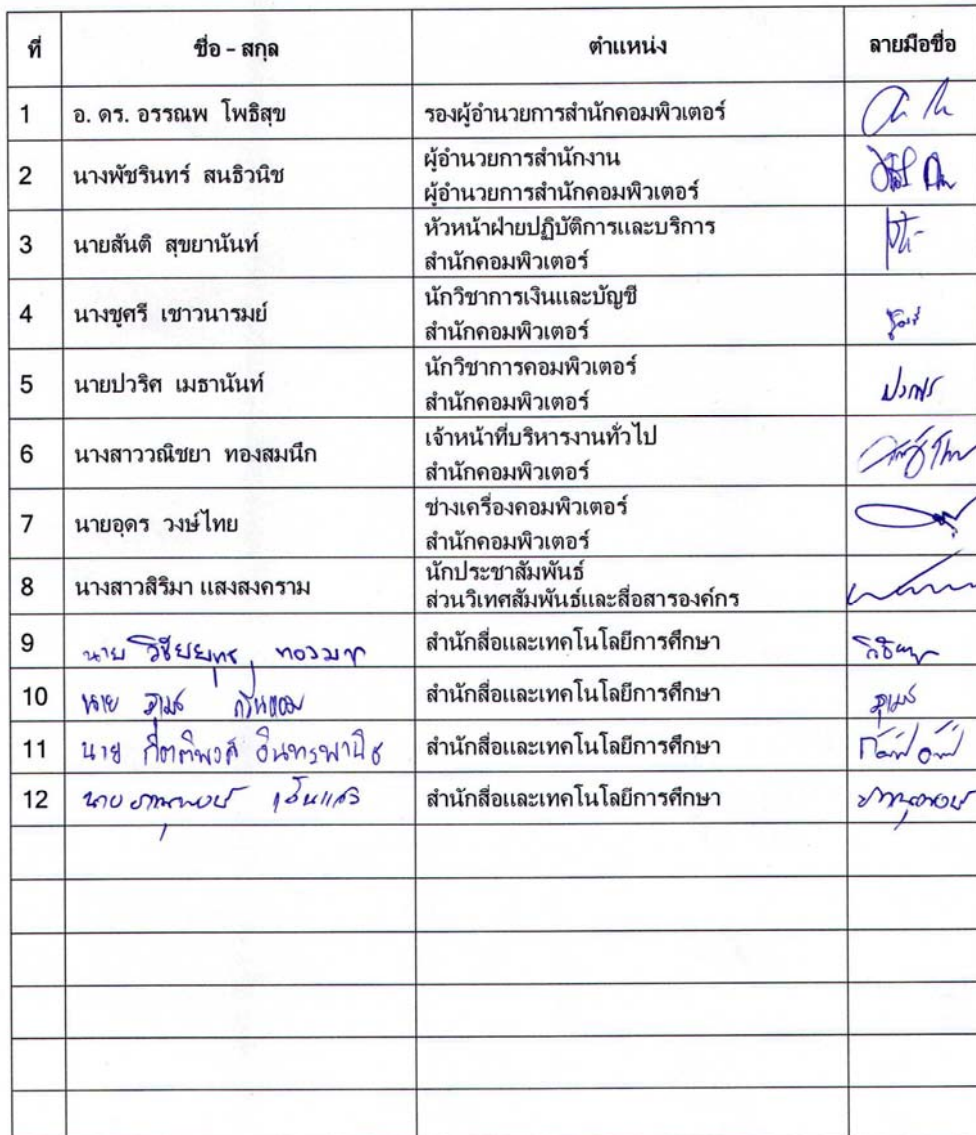 ที่ ชื่อ - สกุล ตำแหน่ง ลายมือชื่อ
1 อ. ดร. อรรณพ โพธิสุข รองผู้อำนวยการสำนักคอมพิวเตอร์
2 นางพัชรินทร์ สนธิวนิช ผู้อำนวยการสำนักงาน
ผู้อำนวยการสำนักคอมพิวเตอร์
3 นายสันติ สุขยานันท์ หัวหน้าฝ่ายปฏิบัติการและบริการ
สำนักคอมพิวเตอร์
4 นางชูศรี เชาวนารมย์ นักวิชาการเงินและบัญชี
สำนักคอมพิวเตอร์
5 นายปวริศ เมธานันท์ นักวิชาการคอมพิวเตอร์
สำนักคอมพิวเตอร์
6 นางสาววณิชยา ทองสมนึก เจ้าหน้าที่บริหารงานทั่วไป
สำนักคอมพิวเตอร์
7 นายอุดร วงษ์ไทย ช่างเครื่องคอมพิวเตอร์
สำนักคอมพิวเตอร์
8 นางสาวสิริมา แสงสงคราม นักประชาสัมพันธ์
ส่วนวิเทศสัมพันธ์และสื่อสารองค์กร
9 นาย สำนักสื่อและเทคโนโลยีการศึกษา
10 นาย สำนักสื่อและเทคโนโลยีการศึกษา
11 นาย กิตติพงศ์ อินทรพานิช สำนักสื่อและเทคโนโลยีการศึกษา
12 นาย สำนักสื่อและเทคโนโลยีการศึกษา